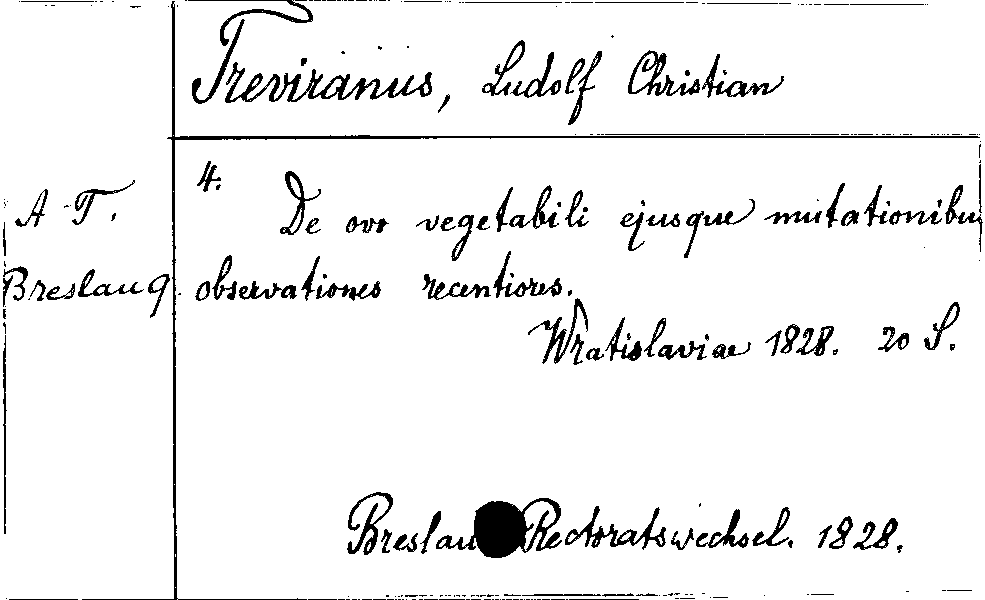 Treviranus, Ludolf Christian
A T.
Breslau 9
4.
De ovo vegetabili ejusque mutationibu
observationes recentiores.
Wratislaviae 1828. 20 S.
Breslau Rectoratswechsel. 1828.